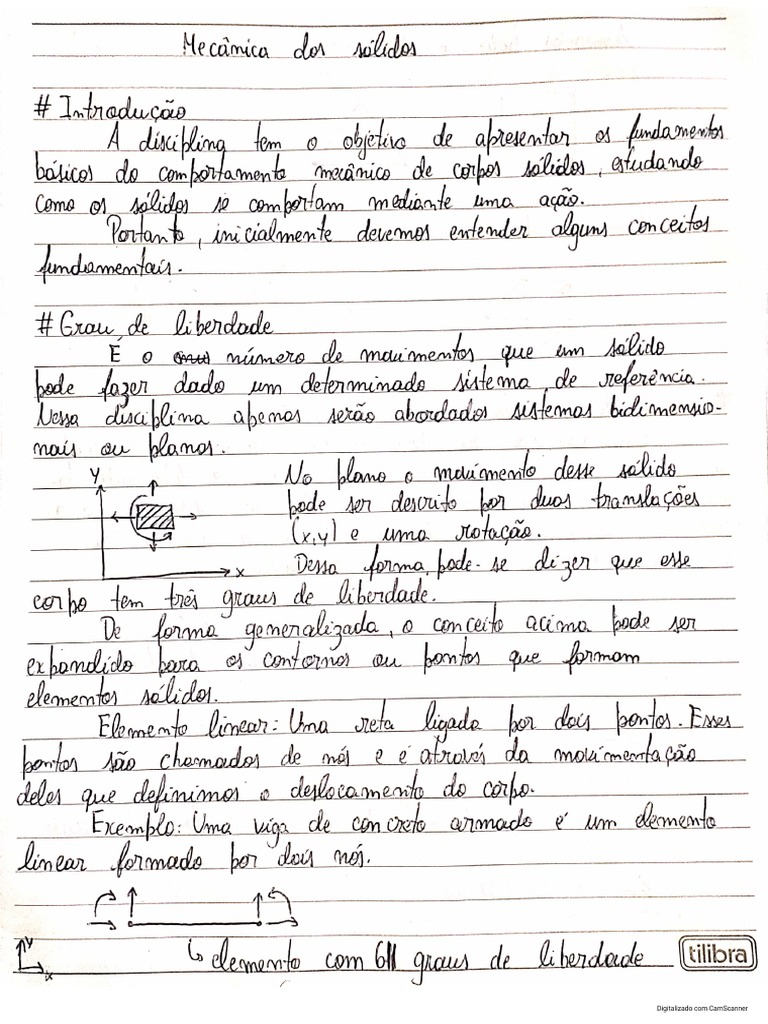 Mecânica dos sólidos
# Introdução
A disciplina tem o objetivo de apresentar os fundamentos
básicos do comportamento mecânico de corpos sólidos, estudando
como os sólidos se comportam mediante uma ação.
Portanto, inicialmente devemos entender alguns conceitos
fundamentais.
# Grau de liberdade
É o número de movimentos que um sólido
pode fazer dado um determinado sistema de referência.
Nessa disciplina apenas serão abordados sistemas bidimensio-
nais ou planos.
y
No plano o movimento desse sólido
pode ser descrito por duas translações
(x,y) e uma rotação.
x
Dessa forma pode-se dizer que esse
corpo tem três graus de liberdade.
De forma generalizada, o conceito acima pode ser
expandido para os contornos ou pontos que formam
elementos sólidos.
Elemento linear: Uma reta ligada por dois pontos. Esses
pontos são chamados de nós e é através da movimentação
deles que definimos o deslocamento do corpo.
Exemplo: Uma viga de concreto armado é um elemento
linear formado por dois nós.
y
x
elemento com 6 graus de liberdade
tilibra
Digitalizado com CamScanner